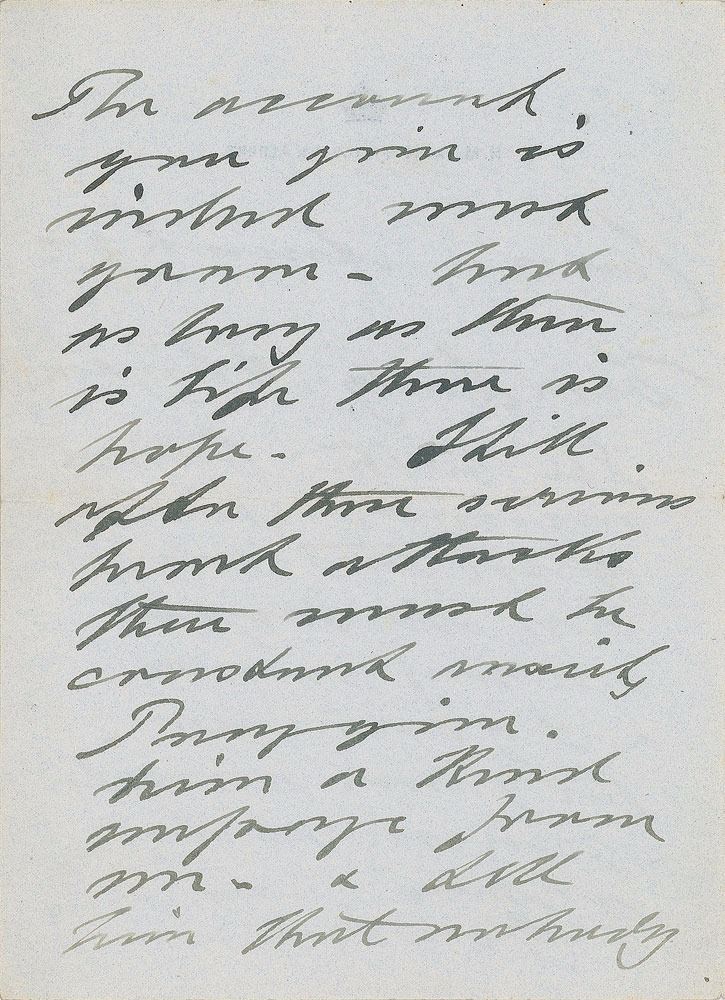 The account
you give is
indeed most
grave - but
as long as there
is life there is
hope. - Still
after three serious
heart attacks
there must be
constant anxiety
Pray give
him a kind
message from
me - & tell
him that nobody